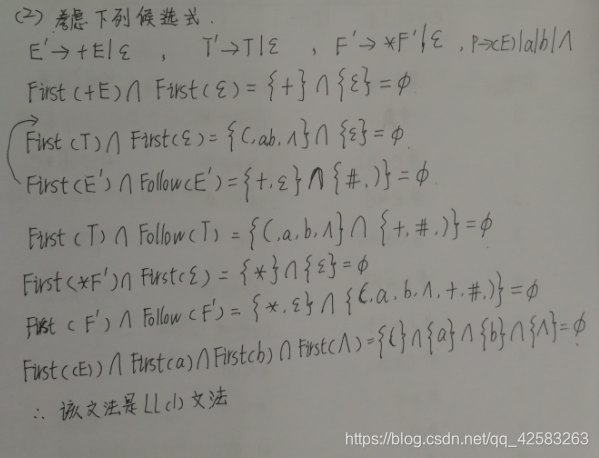 (2) 考虑下列候选式.
E'→+E|ε , T'→T|ε , F'→*F'|ε , P→(E)|a|b|∧
First(+E)∩First(ε)={+}∩{ε}=ф
First(T)∩First(ε)={(,ab,∧}∩{ε}=ф.
First(E')∩Follow(E')={+,ε}∩{#,)}=ф.
First(T)∩Follow(T)={(,a,b,∧}∩{+,#,)}=ф
First(*F')∩First(ε)={*}∩{ε}=ф
First(F')∩Follow(F')={*,ε}∩{(,a,b,∧,+,#,)}=ф
First((E))∩First(a)∩First(b)∩First(∧)={(}∩{a}∩{b}∩{∧}=ф
∴ 该文法是LL(1)文法
https://blog.csdn.net/qq_42583263